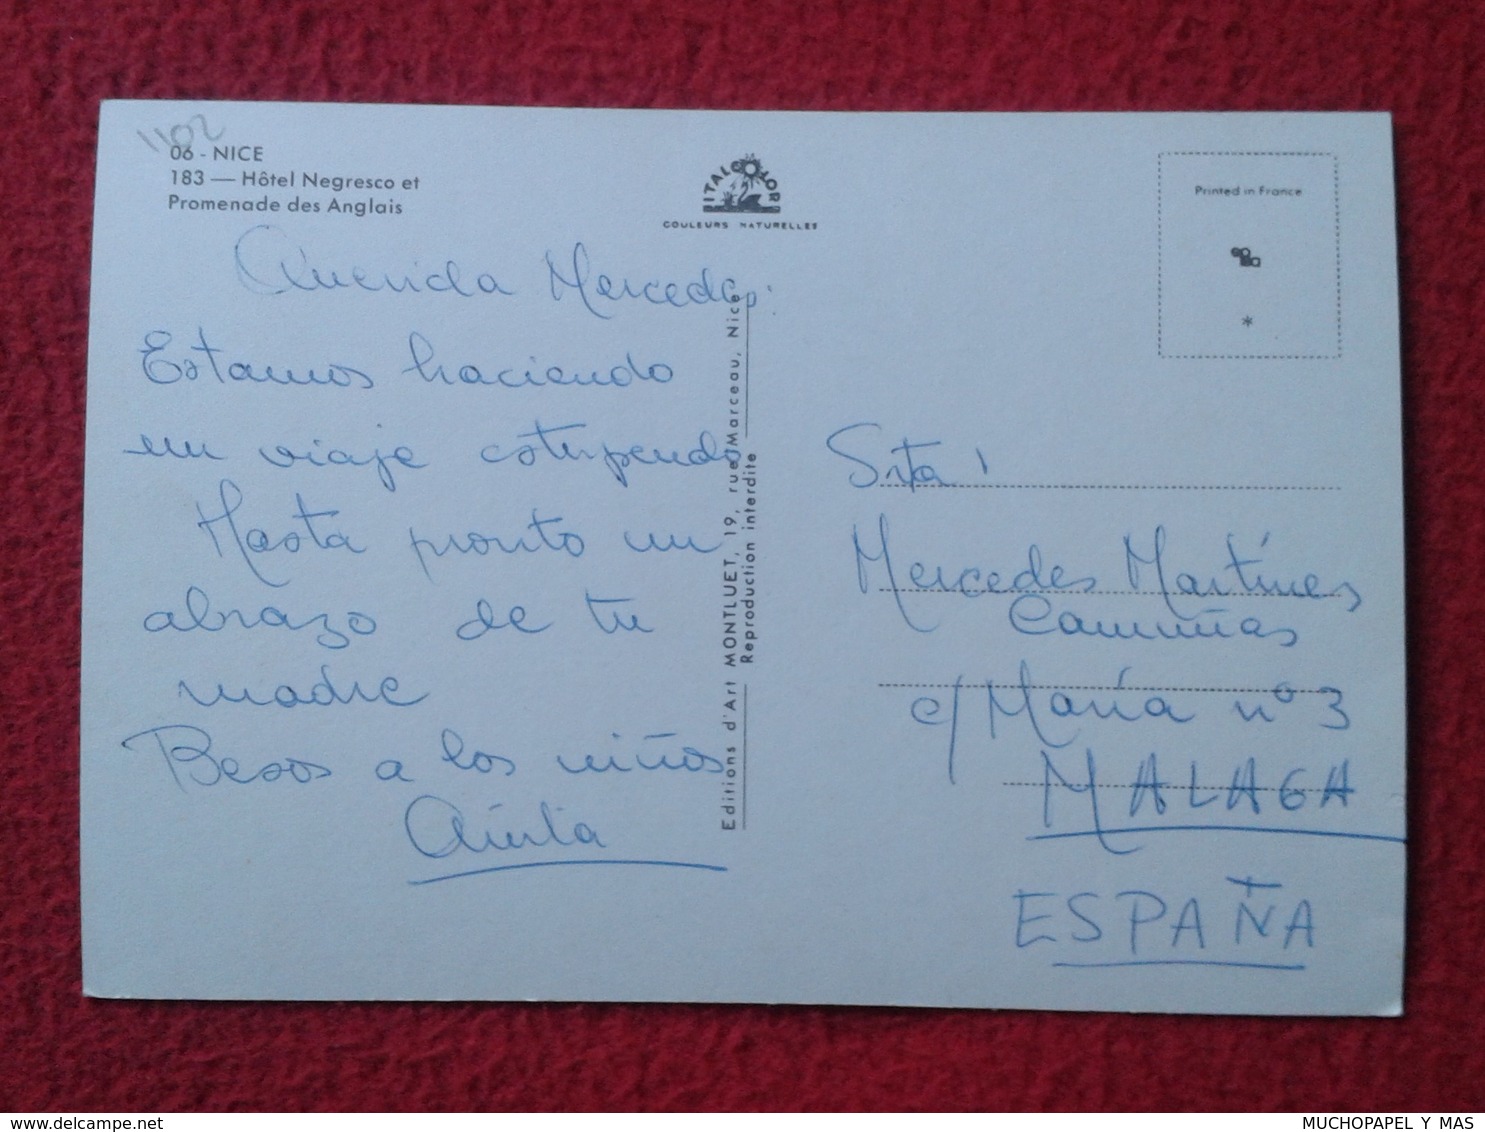 1102
06 - NICE
183 — Hôtel Negresco et
Promenade des Anglais
ITALCOLOR
COULEURS NATURELLES
Printed in France
*
Querida Mercedes.
Estamos haciendo
un viaje estupendo
Hasta pronto un
abrazo de tu
madre
Besos a los niños
Editions d'Art MONTLUET, 19, rue Marceau, Nice
Reproduction interdite
Srta
Mercedes Martínez
c/ María nº 3
MALAGA
ESPAÑA
MUCHOPAPEL Y MAS